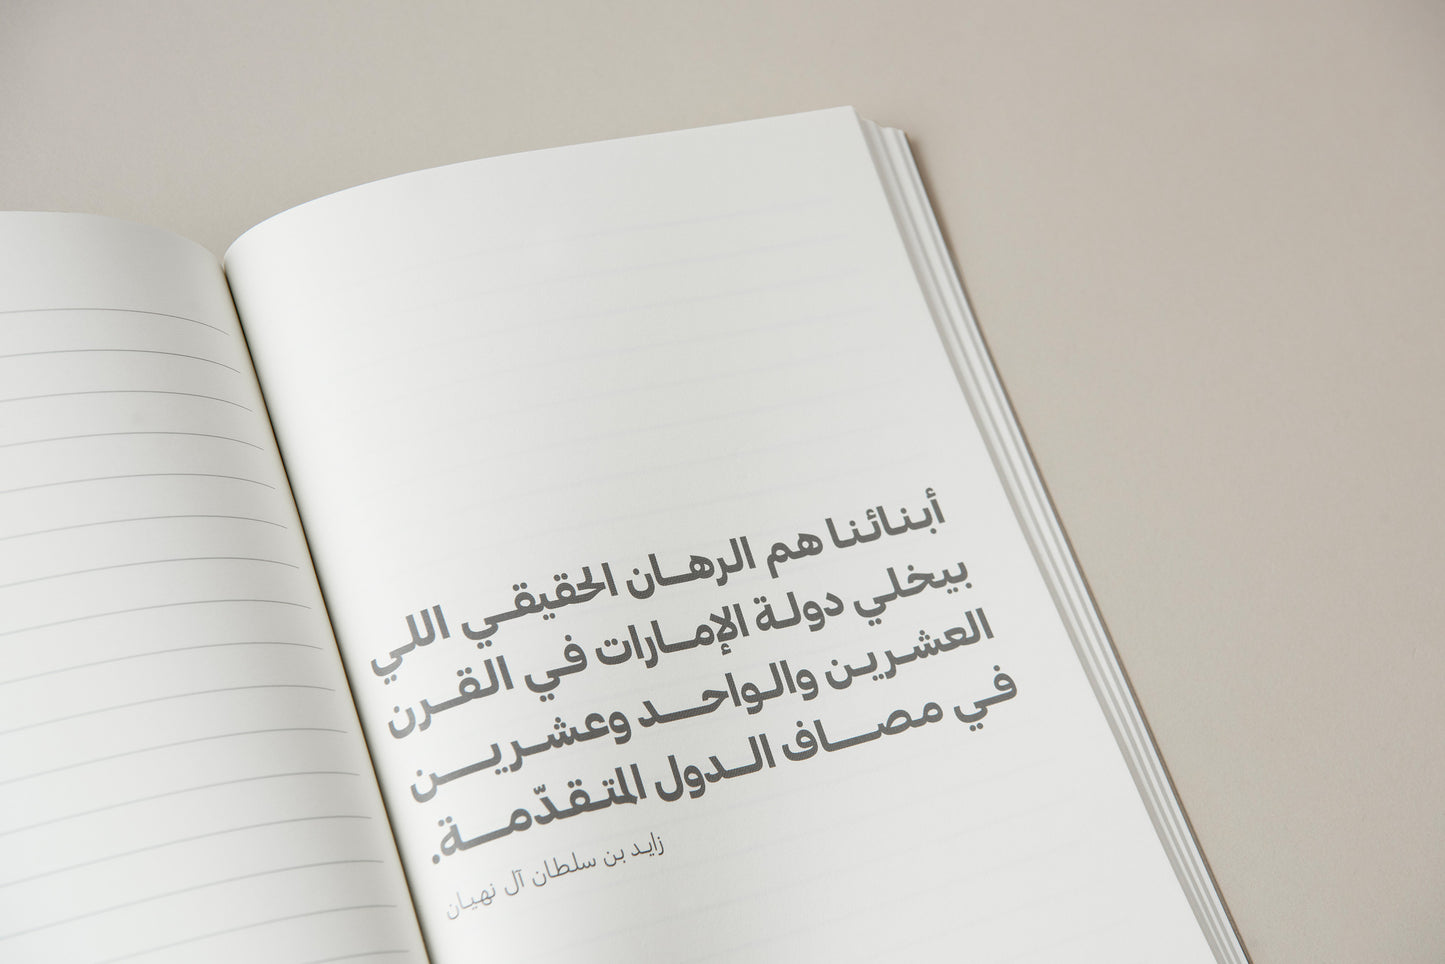 أبنائنا هم الرهان الحقيقي اللي
بيخلي دولة الإمارات في القرن
العشرين والواحد وعشرين
في مصاف الدول المتقدّمة.
زايد بن سلطان آل نهيان